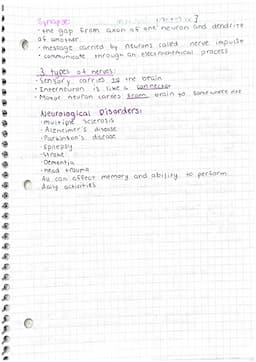 Synapse:
• the gap from axon of one neuron and dendrite
of another.
• message carried by neurons called nerve impulse
• communicate through an electrochemical process
3 types of nerves:
• Sensory carries to the brain
• Interneuron is like a connector
• Motor neuron carries from brain to somewhere else
Neurological Disorders:
• multiple sclerosis
• Alzheimer's disease
• Parkinson's disease
• Epilepsy
• Stroke
• Dementia
• Head trauma
All can affect memory and ability to perform
daily activities